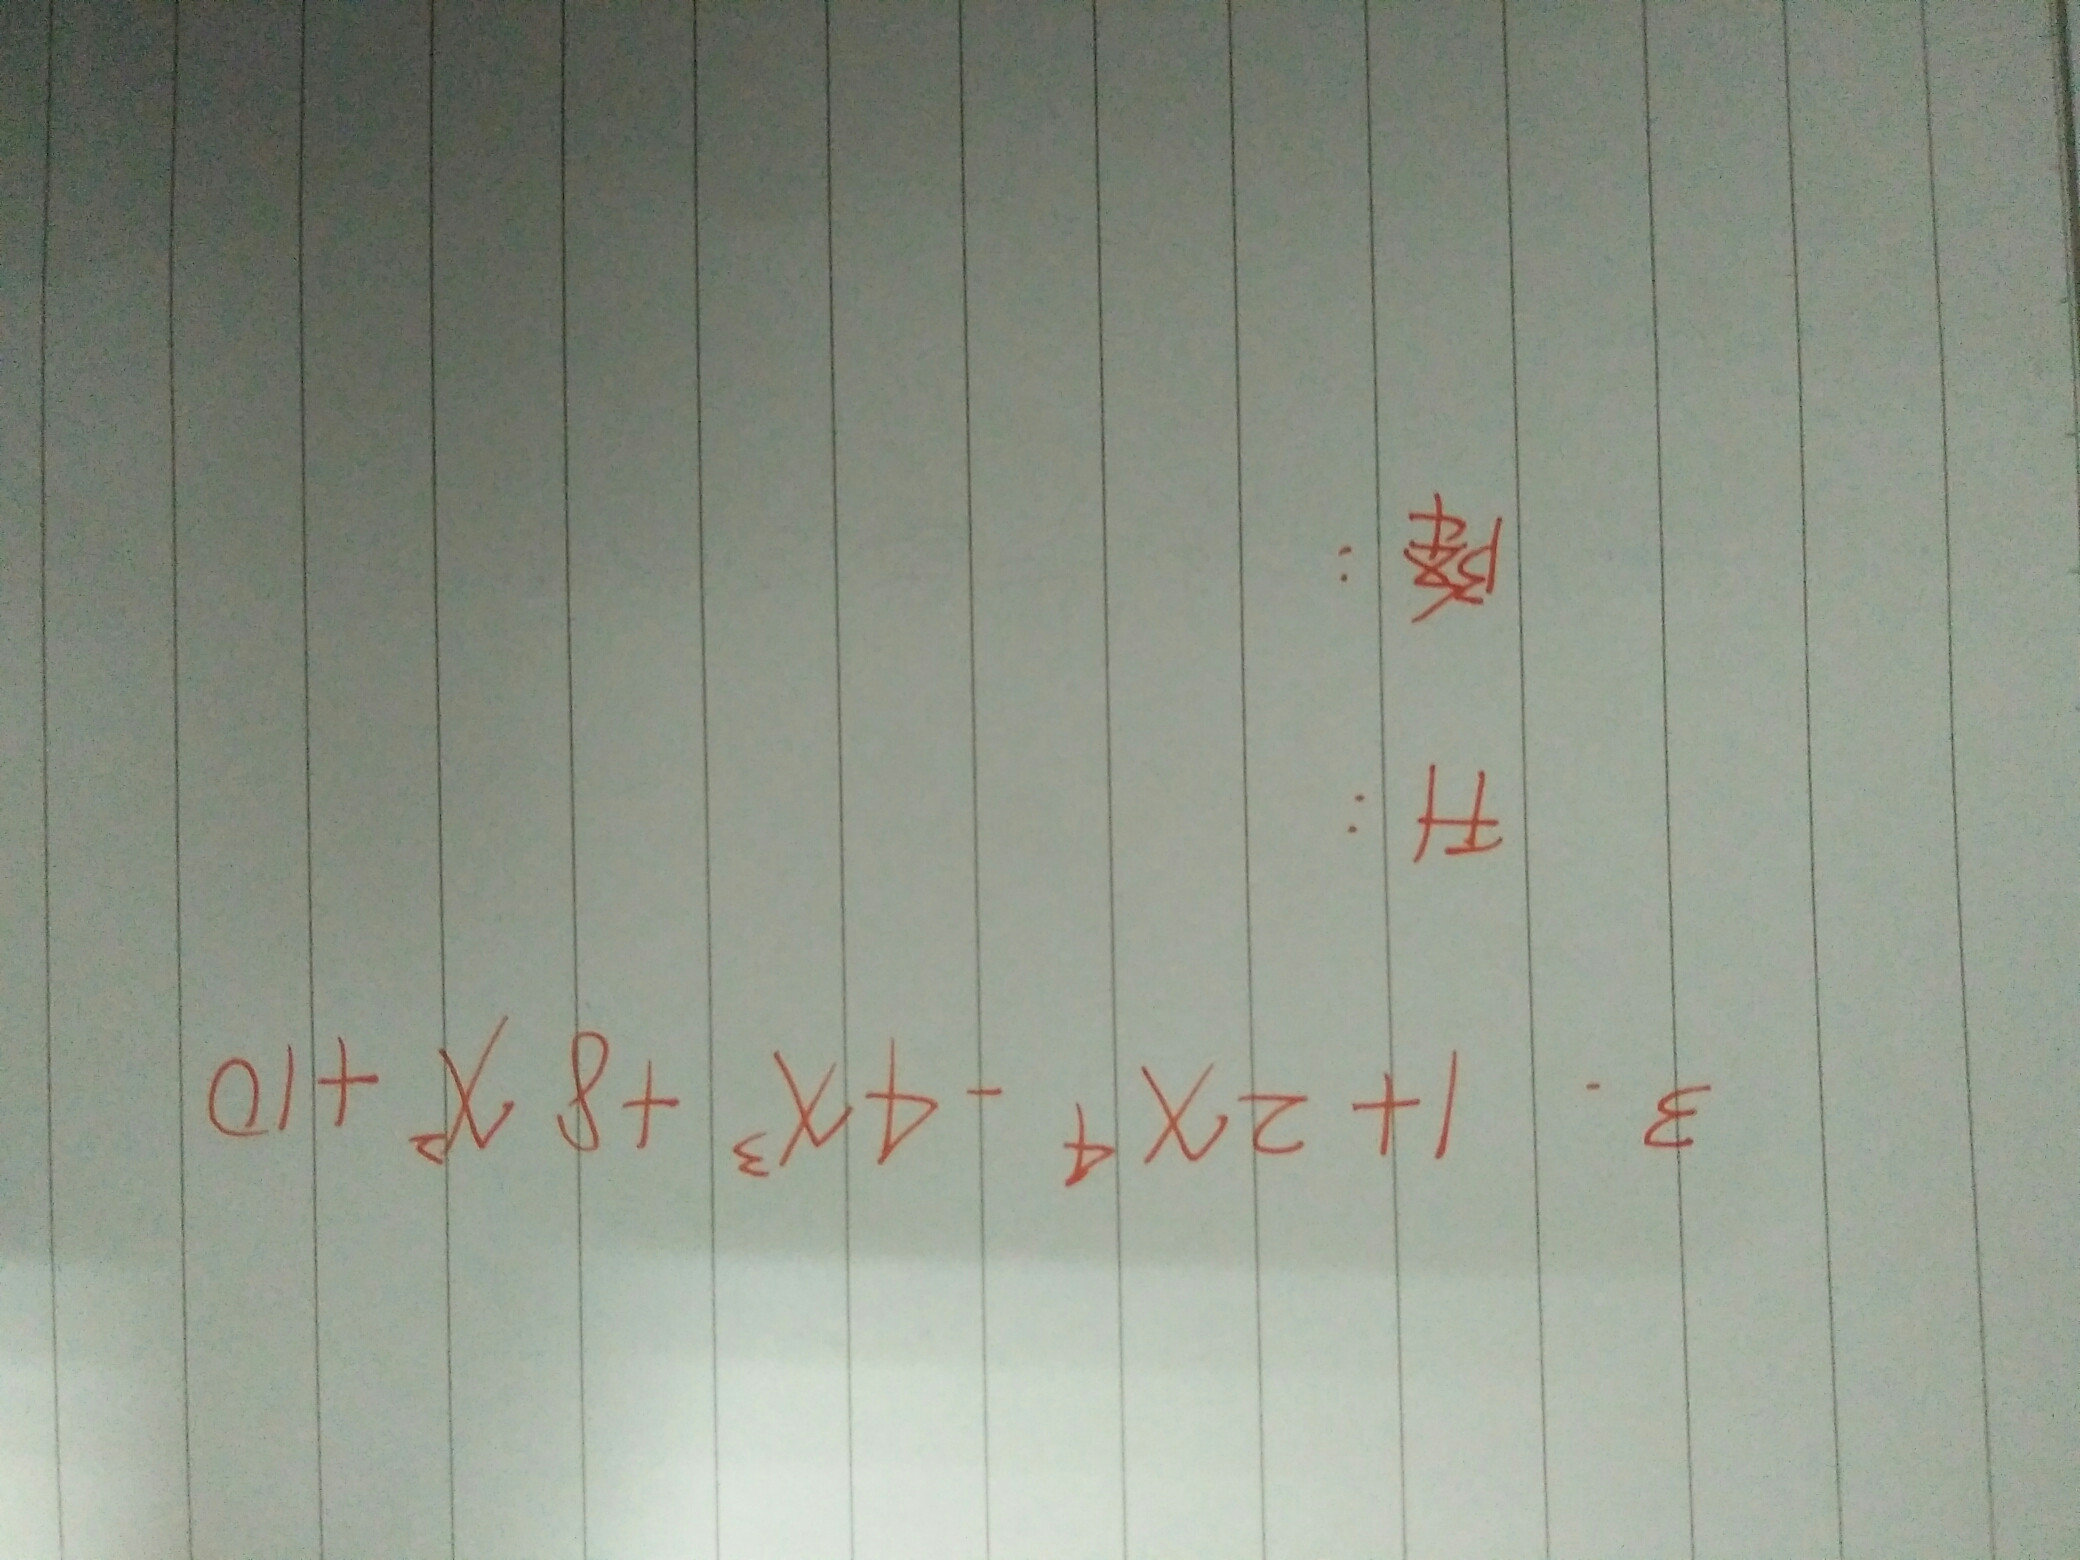 3. 1+2x⁴-4x³+8x²+10
升:
降: